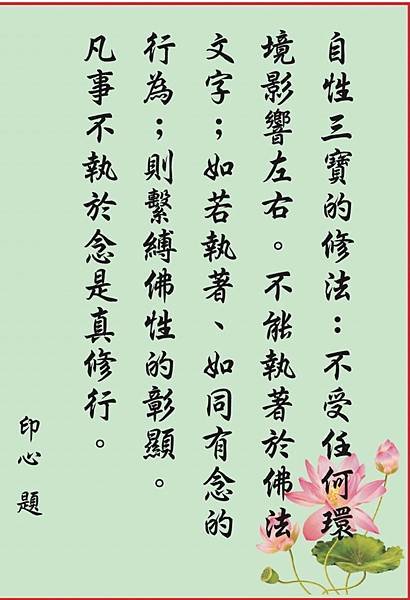 自性三寶的修法：不受任何環
境影響左右。不能執著於佛法
文字；如若執著、如同有念的
行為；則繫縛佛性的彰顯。
凡事不執於念是真修行。
印心 題